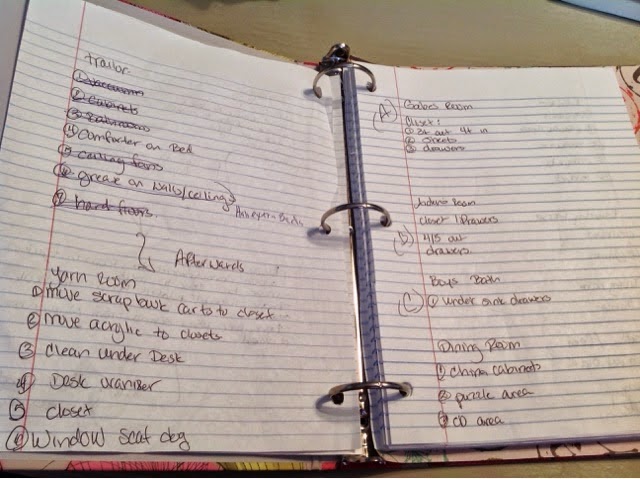 trailor
① vaccuum
② cabinets
③ Bathroom
④ comforter on Bed
⑤ ceiling fans
⑥ grease on walls/ceilings
⑦ hard floors
Afterwards
Yarn Room
① move scrapbook carts to closet
② move acrylic to closets
③ clean under Desk
④ Desk
⑤ closet
⑥ window seat
(A) Gabes Room
closet:
① 3t out 4t in
② sheets
③ drawers
Room
closet / Drawers
(B) 4/5 out
drawers
Boys Bath
(C) ① under sink drawers
Dining Room
① china cabinets
② puzzle area
③ CD area